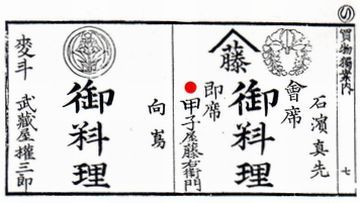 買物獨案内
七
石濱真先
會席
藤
御料理
即席
甲子屋藤右衛門
向嶌
御料理
麥斗
武藏屋權三郎